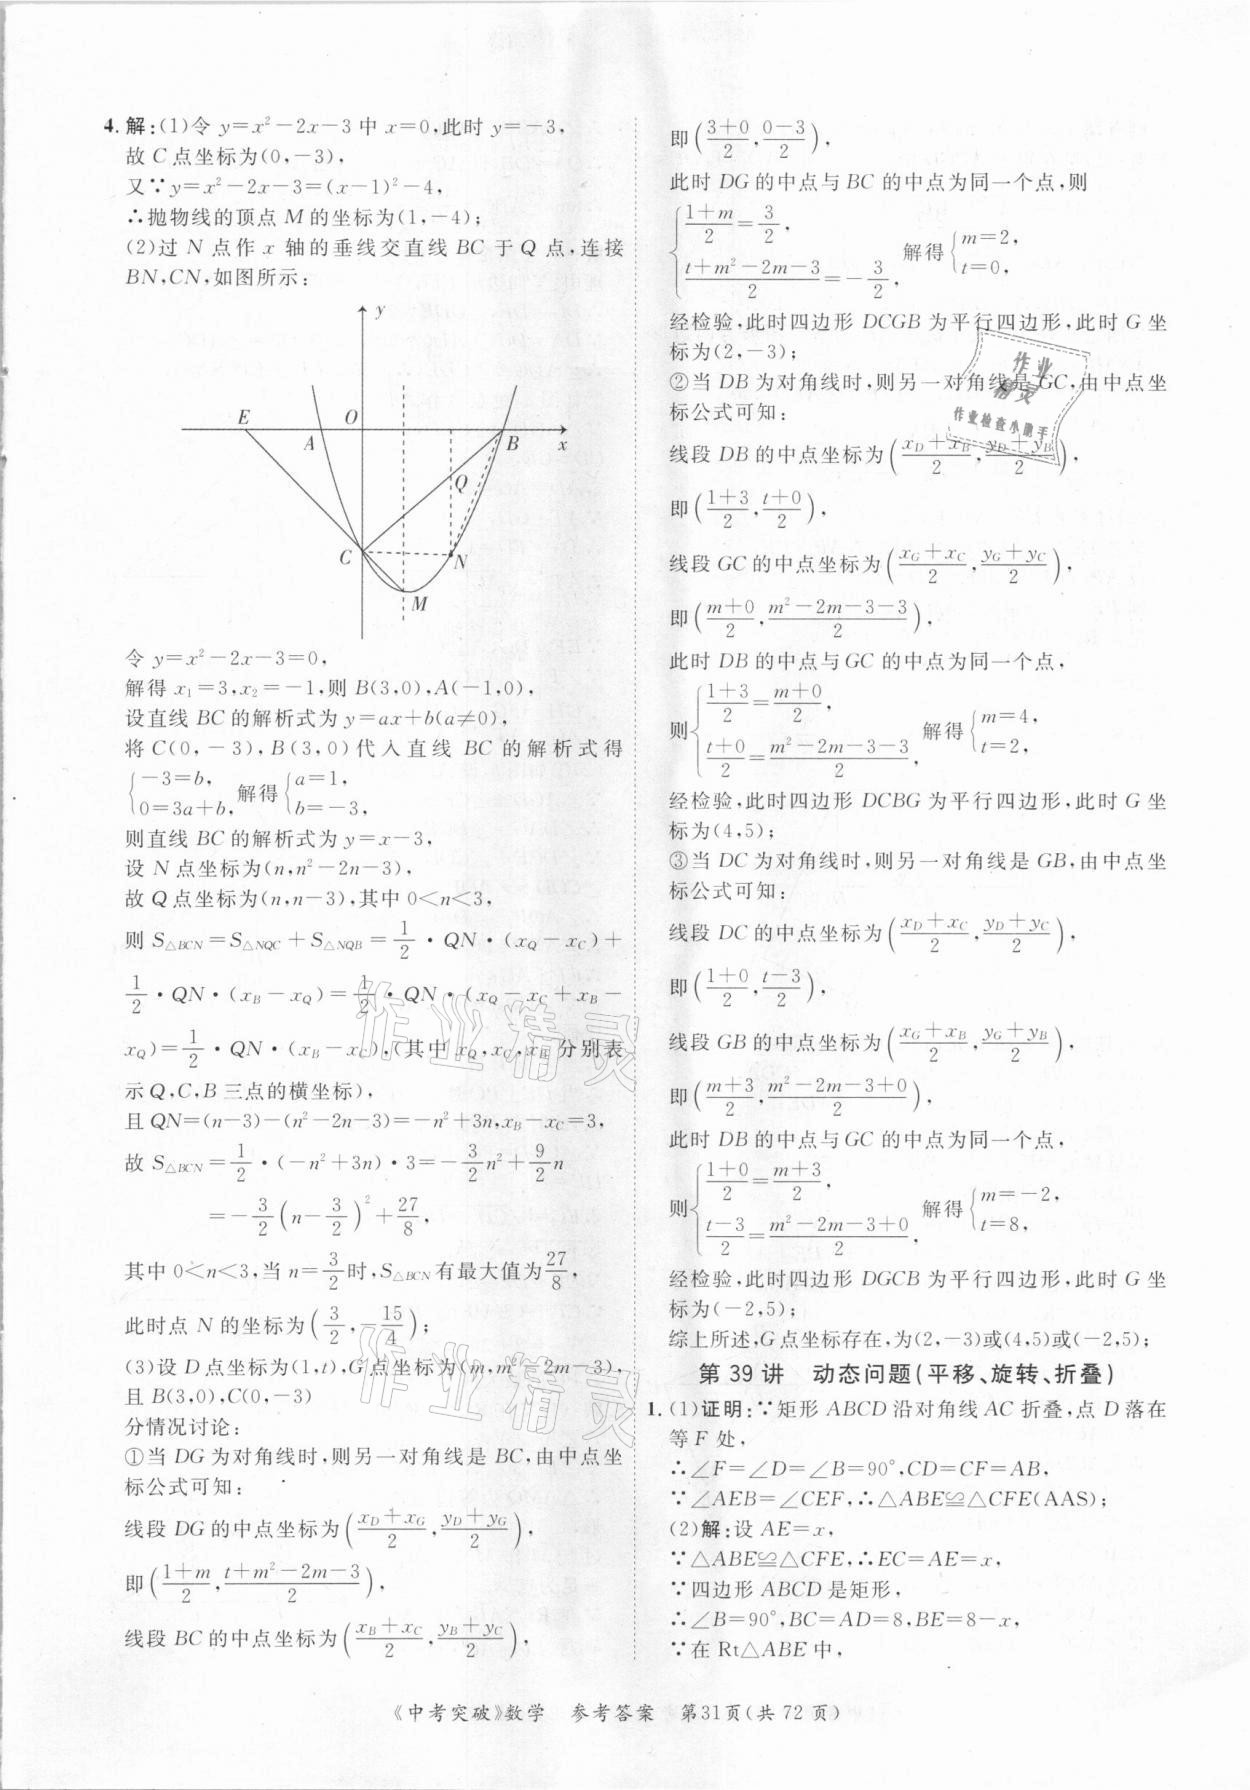 4. 解:(1)令 y=x²-2x-3 中 x=0,此时 y=-3,
故 C 点坐标为(0,-3),
又∵y=x²-2x-3=(x-1)²-4,
∴抛物线的顶点 M 的坐标为(1,-4);
(2)过 N 点作 x 轴的垂线交直线 BC 于 Q 点,连接
BN,CN,如图所示:
y
E A O B x
Q
C N
M
令 y=x²-2x-3=0,
解得 x₁=3,x₂=-1,则 B(3,0),A(-1,0),
设直线 BC 的解析式为 y=ax+b(a≠0),
将 C(0,-3),B(3,0)代入直线 BC 的解析式得
{-3=b, 0=3a+b, 解得{a=1, b=-3,
则直线 BC 的解析式为 y=x-3,
设 N 点坐标为(n,n²-2n-3),
故 Q 点坐标为(n,n-3),其中 0<n<3,
则 S△BCN=S△NQC+S△NQB=1/2·QN·(xQ-xC)+
1/2·QN·(xB-xQ)=1/2·QN·(xQ-xC+xB-
xQ)=1/2·QN·(xB-xC),(其中 xQ,xC,xB 分别表
示 Q,C,B 三点的横坐标),
且 QN=(n-3)-(n²-2n-3)=-n²+3n,xB-xC=3,
故 S△BCN=1/2·(-n²+3n)·3=-3/2n²+9/2n
=-3/2(n-3/2)²+27/8,
其中 0<n<3,当 n=3/2时,S△BCN有最大值为27/8,
此时点 N 的坐标为(3/2,-15/4);
(3)设 D 点坐标为(1,t),G 点坐标为(m,m²-2m-3),
且 B(3,0),C(0,-3)
分情况讨论:
①当 DG 为对角线时,则另一对角线是 BC,由中点坐
标公式可知:
线段 DG 的中点坐标为((xD+xG)/2,(yD+yG)/2),
即((1+m)/2,(t+m²-2m-3)/2),
线段 BC 的中点坐标为((xB+xC)/2,(yB+yC)/2),
即((3+0)/2,(0-3)/2),
此时 DG 的中点与 BC 的中点为同一个点,则
{(1+m)/2=3/2, (t+m²-2m-3)/2=-3/2, 解得{m=2, t=0,
经检验,此时四边形 DCGB 为平行四边形,此时 G 坐
标为(2,-3);
②当 DB 为对角线时,则另一对角线是 GC,由中点坐
标公式可知:
线段 DB 的中点坐标为((xD+xB)/2,(yD+yB)/2),
即((1+3)/2,(t+0)/2),
线段 GC 的中点坐标为((xG+xC)/2,(yG+yC)/2),
即((m+0)/2,(m²-2m-3-3)/2),
此时 DB 的中点与 GC 的中点为同一个点,
则{(1+3)/2=(m+0)/2, (t+0)/2=(m²-2m-3-3)/2, 解得{m=4, t=2,
经检验,此时四边形 DCBG 为平行四边形,此时 G 坐
标为(4,5);
③当 DC 为对角线时,则另一对角线是 GB,由中点坐
标公式可知:
线段 DC 的中点坐标为((xD+xC)/2,(yD+yC)/2),
即((1+0)/2,(t-3)/2),
线段 GB 的中点坐标为((xG+xB)/2,(yG+yB)/2),
即((m+3)/2,(m²-2m-3+0)/2),
此时 DB 的中点与 GC 的中点为同一个点,
则{(1+0)/2=(m+3)/2, (t-3)/2=(m²-2m-3+0)/2, 解得{m=-2, t=8,
经检验,此时四边形 DGCB 为平行四边形,此时 G 坐
标为(-2,5);
综上所述,G 点坐标存在,为(2,-3)或(4,5)或(-2,5);
第 39 讲 动态问题(平移、旋转、折叠)
1. (1)证明:∵矩形 ABCD 沿对角线 AC 折叠,点 D 落在
等 F 处,
∴∠F=∠D=∠B=90°,CD=CF=AB,
∵∠AEB=∠CEF,∴△ABE≌△CFE(AAS);
(2)解:设 AE=x,
∵△ABE≌△CFE,∴EC=AE=x,
∵四边形 ABCD 是矩形,
∴∠B=90°,BC=AD=8,BE=8-x,
∵在 Rt△ABE 中,
《中考突破》数学 参考答案 第31页(共 72 页)
作业精灵
作业精灵
作业
精灵
作业检查小助手